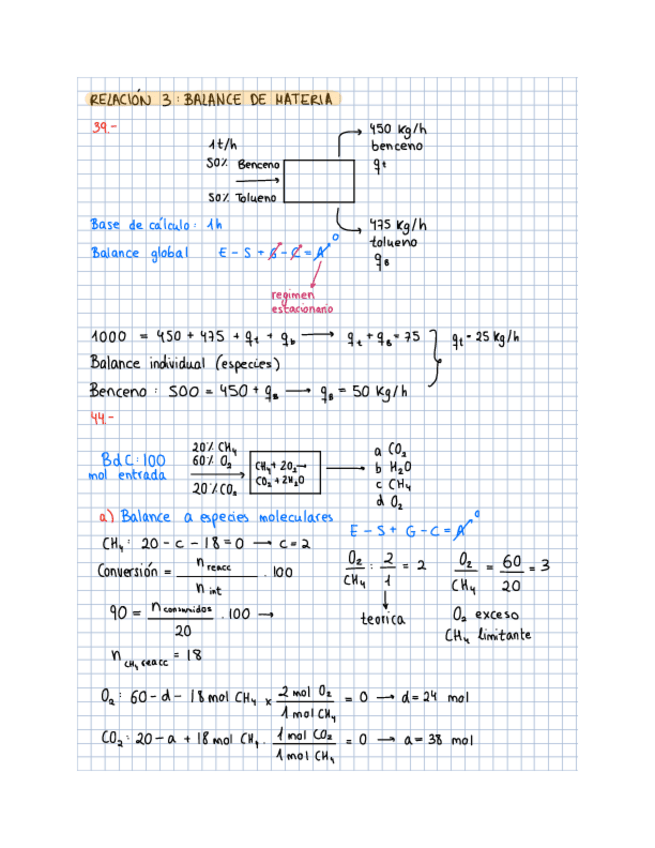 RELACIÓN 3: BALANCE DE MATERIA
39.-
1t/h
50% Benceno
50% Tolueno
450 Kg/h
benceno
qt
475 Kg/h
tolueno
qB
Base de cálculo: 1h
Balance global E - S + G - C = A 0
regimen
estacionario
1000 = 450 + 475 + qt + qb → qt + qB = 75
qt = 25 Kg/h
Balance individual (especies)
Benceno: 500 = 450 + qB → qB = 50 Kg/h
44.-
BdC: 100
mol entrada
20% CH4
60% O2
20% CO2
CH4 + 2O2 →
CO2 + 2H2O
a CO2
b H2O
c CH4
d O2
a) Balance a especies moleculares
E - S + G - C = A 0
CH4: 20 - c - 18 = 0 → c = 2
Conversión = n reacc / n int . 100
O2/CH4 : 2/1 = 2
teorica
O2/CH4 = 60/20 = 3
O2 exceso
CH4 limitante
90 = n consumidos / 20 . 100 →
n CH4 reacc = 18
O2: 60 - d - 18 mol CH4 x 2 mol O2 / 1 mol CH4 = 0 → d = 24 mol
CO2: 20 - a + 18 mol CH4 . 1 mol CO2 / 1 mol CH4 = 0 → a = 38 mol